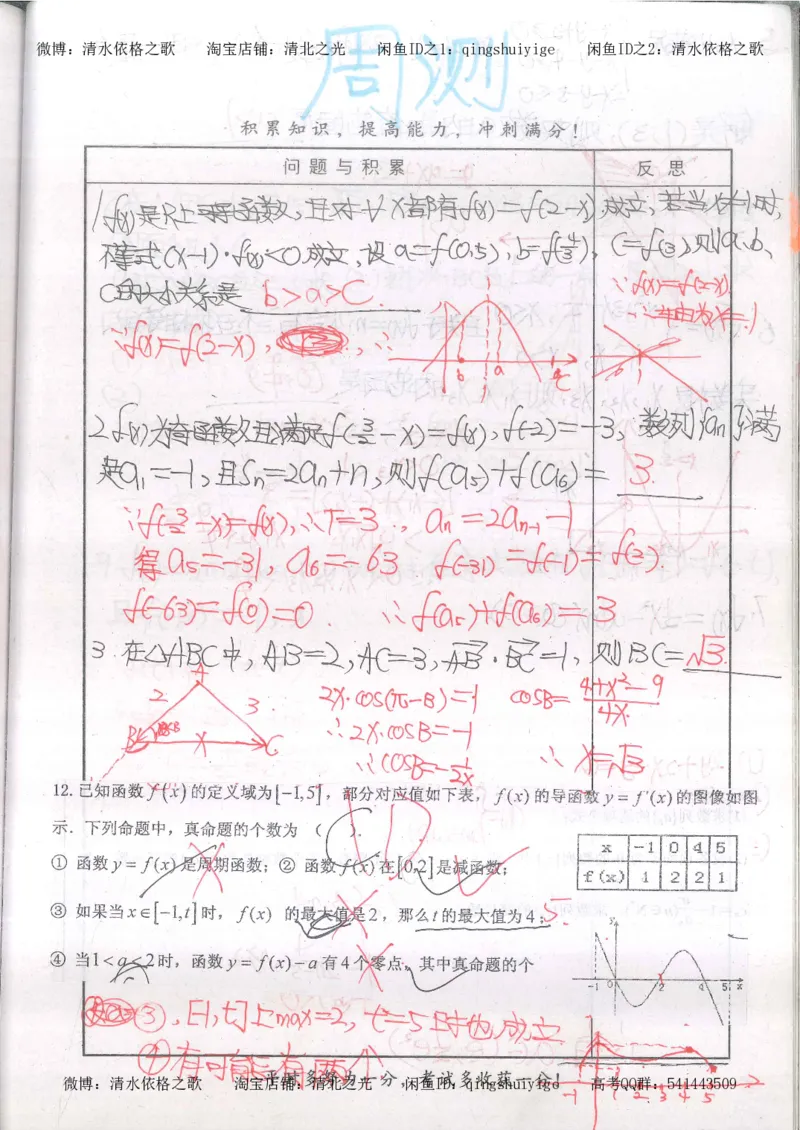 微博：清水依格之歌 淘宝店铺：清北之光 闲鱼ID之1：qingshuiyige 闲鱼ID之2：清水依格之歌
周测
积累知识，提高能力，冲刺满分！
问题与积累 反思
1.f(x)是R上可导函数,且对∀x都有f(x)=f(2-x)成立,若当x≠1时,
不等式(x-1)·f'(x)<0成立,设a=f(0.5),b=f(4/3),c=f(3),则a、b、
c的大小关系是 b>a>c.
∵f(x)=f(2-x),
∴
∵f(x)=f(2-x).
∴对称轴为x=1.
b a c
0 1
2.f(x)为奇函数且满足f(3/2-x)=f(x),f(-2)=-3,数列{an}满
足a₁=-1,且Sn=2an+n,则f(a₅)+f(a₆)= 3.
∵f(3/2-x)=f(x),∴T=3 ∴ an=2an-1-1
得a₅=-31, a₆=-63 f(-31)=f(-1)=f(2)
f(-63)=f(0)=0 ∴f(a₅)+f(a₆)=3
3.在△ABC中,AB=2,AC=3,AB·BC=1,则BC=√3.
A
2 3
B x C
2x·cos(π-B)=1 cosB=(4+x²-9)/4x
∴2x·cosB=-1
∴cosB=-1/2x ∴x=√3
12.已知函数f(x)的定义域为[-1,5]，部分对应值如下表，f(x)的导函数y=f'(x)的图像如图
示．下列命题中，真命题的个数为（ ）．
D
① 函数y=f(x)是周期函数；② 函数f(x)在[0,2]是减函数；
x -1 0 4 5
f(x) 1 2 2 1
③ 如果当x∈[-1,t]时，f(x) 的最大值是2，那么t的最大值为4； 5.
④ 当1<a<2时，函数y=f(x)-a有4个零点。其中真命题的个
y
-1 0 2 4 5 x
③,[-1,t]上max=2, t=5时也成立
④有可能有两个
-1 1 2 3 4 5
平时多努力一分，考试多收获一分！
微博：清水依格之歌 淘宝店铺：清北之光 闲鱼ID：qingshuiyige 高考QQ群：541443509